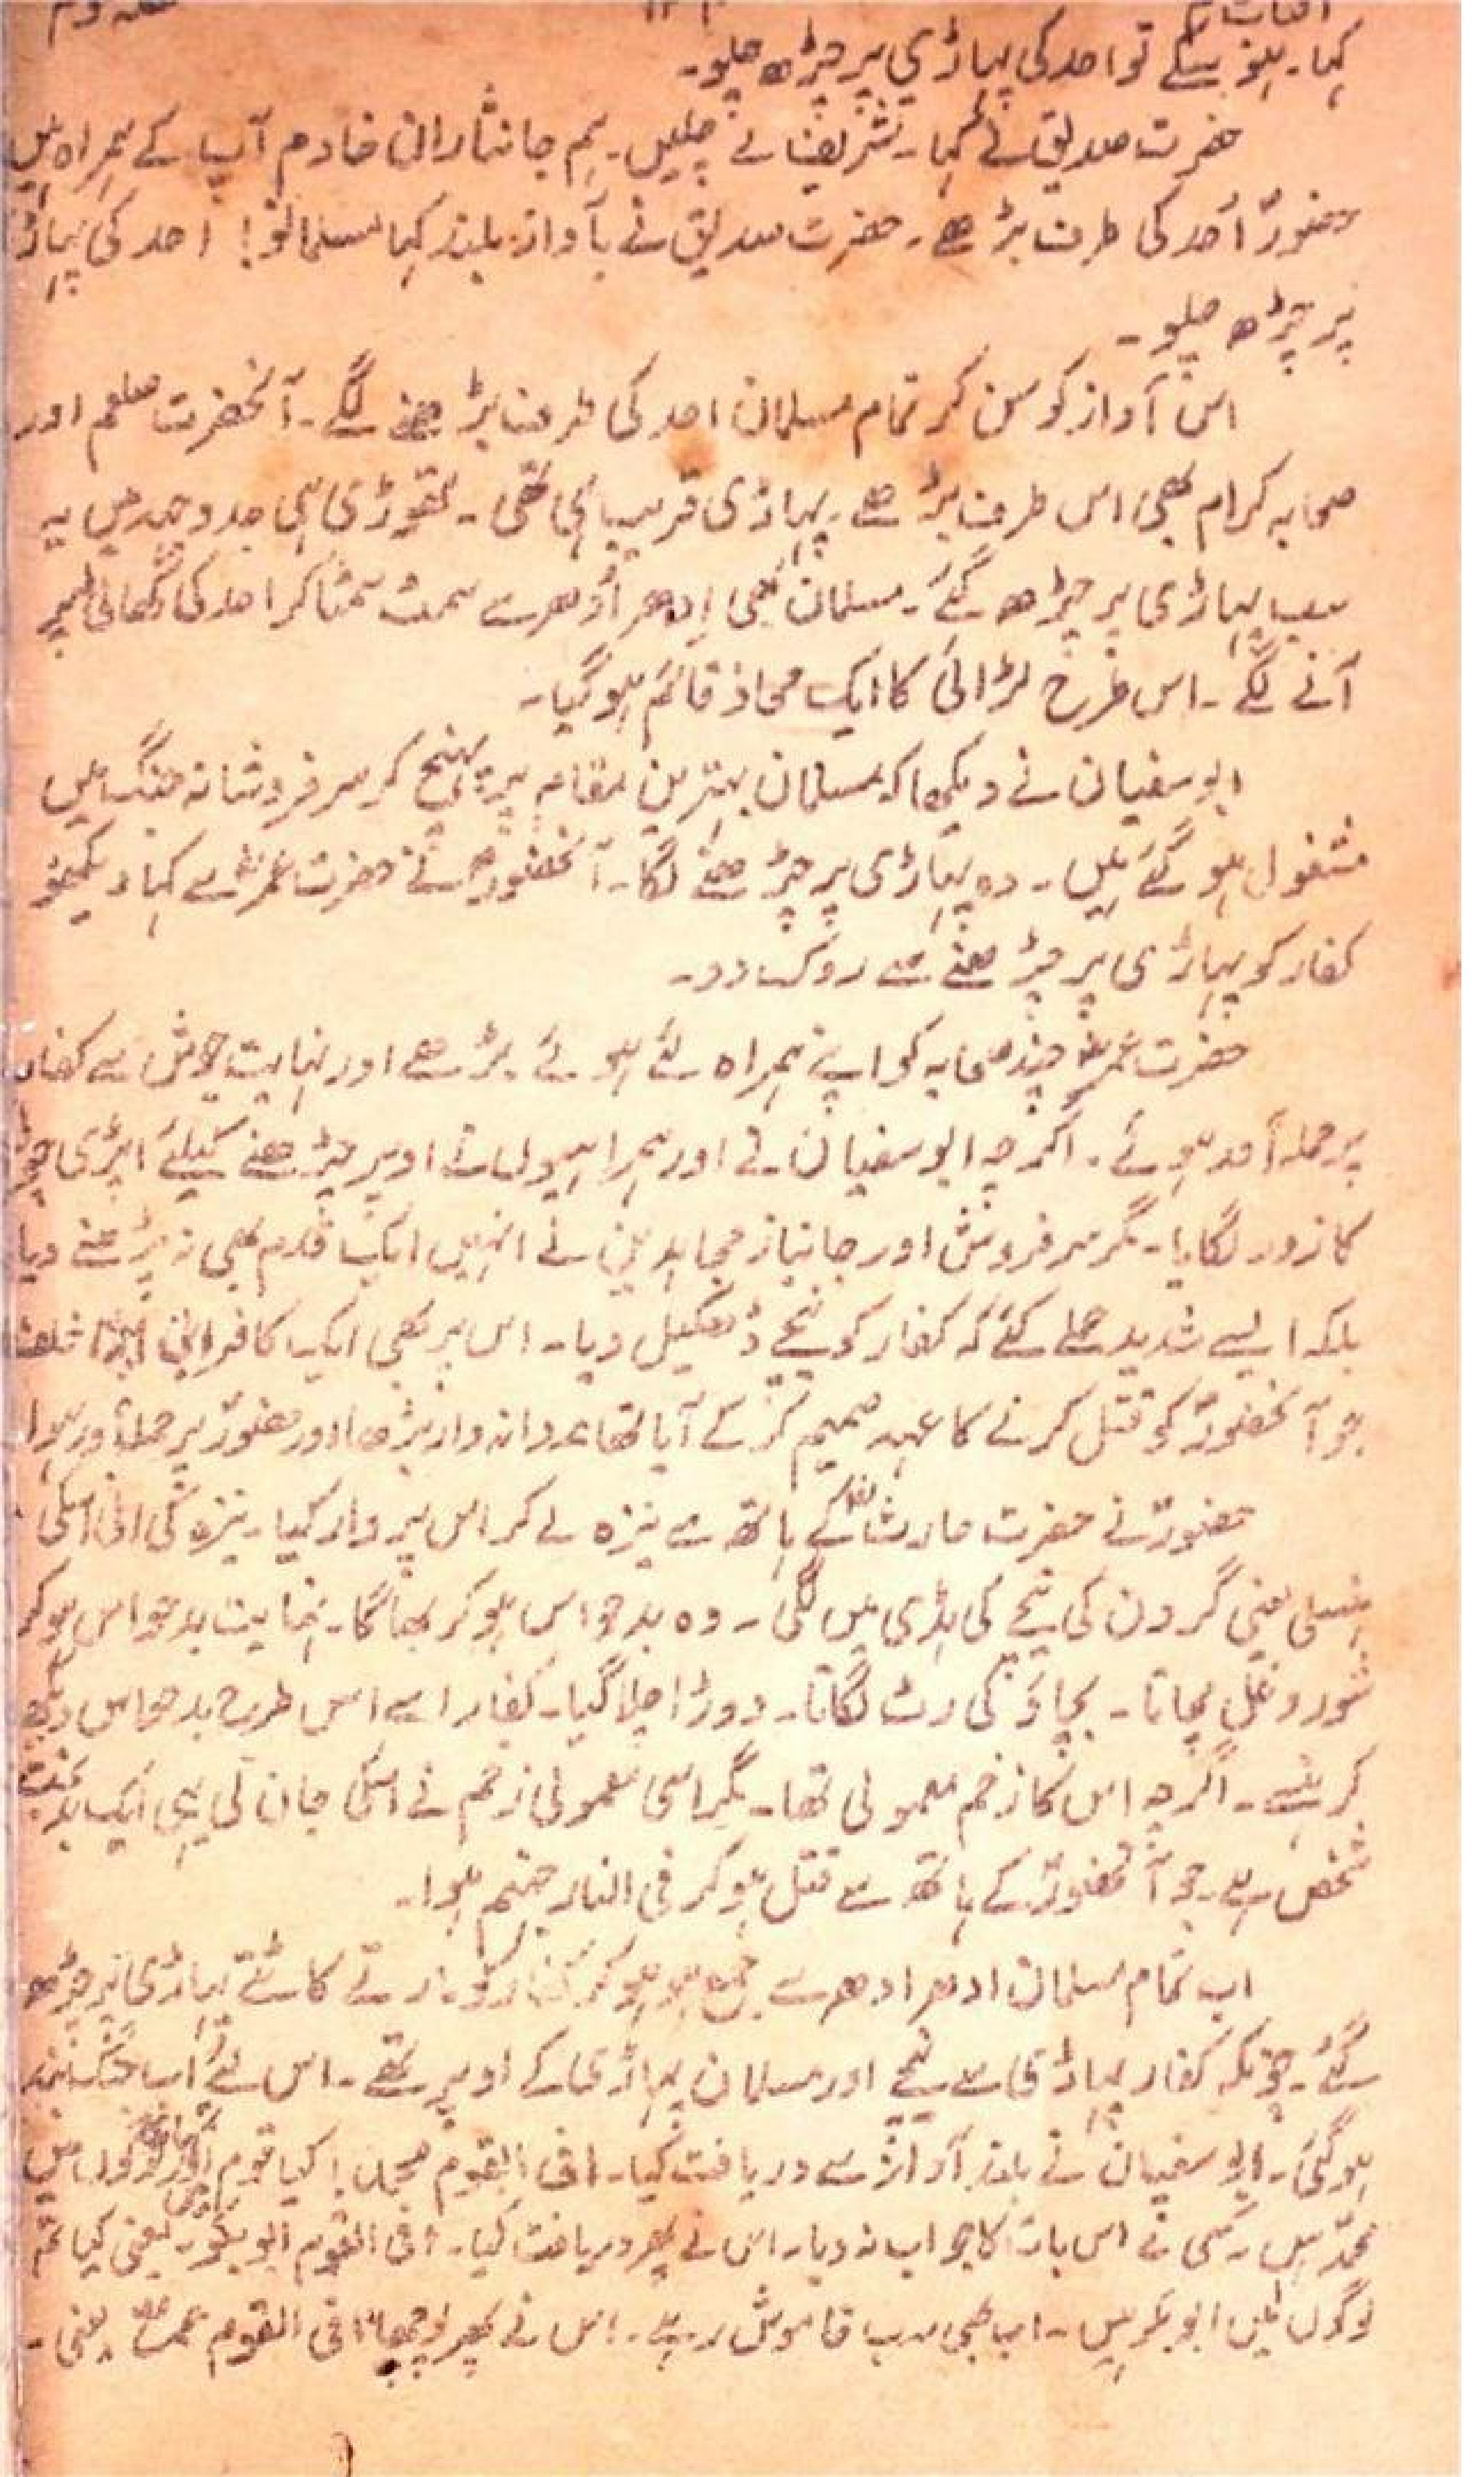 کہا۔ ہو سکے تو احد کی پہاڑی پر چڑھ چلو۔
حضرت صدیق نے کہا۔ تشریف لے چلیں۔ ہم جانثاران خادم آپ کے ہمراہ ہیں
حضورؐ اُحد کی طرف بڑھے۔ حضرت صدیق نے بآواز بلند کہا مسلمانو! احد کی پہاڑی
پر چڑھ چلو۔
اس آواز کو سن کر تمام مسلمان احد کی طرف بڑھنے لگے۔ آنحضرت صلعم اور
صحابہ کرام بھی اس طرف بڑھے۔ پہاڑی قریب ہی تھی۔ تھوڑی ہی جدوجہد میں یہ
سب پہاڑی پر چڑھ گئے۔ مسلمان بھی اِدھر اُدھر سے سمٹ سمٹا کر احد کی گھاٹی پر
آنے لگے۔ اس طرح لڑائی کا ایک محاذ قائم ہو گیا۔
ابو سفیان نے دیکھا کہ مسلمان بہترین مقام پر پہنچ کر سرفروشانہ جنگ میں
مشغول ہو گئے ہیں۔ وہ پہاڑی پر چڑھنے لگا۔ آنحضورؐ نے حضرت عمرؓ سے کہا دیکھو
کفار کو پہاڑی پر چڑھنے سے روک دو۔
حضرت عمرؓ چند صحابہ کو اپنے ہمراہ لئے ہوئے بڑھے اور نہایت جوش سے کفار
پر حملہ آور ہوئے۔ اگرچہ ابو سفیان نے اور ہمراہیوں نے اوپر چڑھنے کیلئے ایڑی چوٹی
کا زور لگایا۔ مگر سرفروش اور جانباز مجاہدین نے انہیں ایک قدم بھی نہ بڑھنے دیا
بلکہ ایسے شدید حملے کئے کہ کفار کو نیچے دھکیل دیا۔ اس پر بھی ایک کافر ابی ابن خلف
جو آنحضورؐ کو قتل کرنے کا عہد صمیم کر کے آیا تھا مردانہ وار بڑھا اور حضورؐ پر حملہ آور ہوا
حضورؐ نے حضرت حارثؓ کے ہاتھ سے نیزہ لے کر اس پر وار کیا۔ نیزہ کی انی اسکی
ہنسلی یعنی گردن کی نیچے کی ہڈی میں لگی۔ وہ بدحواس ہو کر بھاگا۔ نہایت بدحواس ہو کر
شور و غل مچاتا۔ بچاؤ کی رٹ لگاتا۔ دوڑا چلا گیا۔ کفار اسے اس طرح بدحواس دیکھ
کر ہنسے۔ اگرچہ اس کا زخم معمولی تھا۔ مگر اسی معمولی زخم نے اسکی جان لی یہی ایک بدبخت
شخص ہے۔ جو آنحضورؐ کے ہاتھ سے قتل ہو کر فی النار جہنم ہوا۔
اب تمام مسلمان ادھر ادھر سے جمع ہو ہو کر کفار کو مارتے کاٹتے پہاڑی پر چڑھ
گئے۔ چونکہ کفار پہاڑی سے نیچے اور مسلمان پہاڑی کے اوپر تھے۔ اس لئے اب جنگ بند
ہو گئی۔ ابو سفیان نے بلند آواز سے دریافت کیا۔ افی القوم محمد! کیا قوم لوگوں میں
محمدؐ ہیں۔ کسی نے اس بات کا جواب نہ دیا۔ اس نے پھر دریافت کیا۔ افی القوم ابوبکر۔ یعنی کیا تم
لوگوں میں ابوبکر ہیں۔ اب بھی سب خاموش رہے۔ اس نے پھر پوچھا افی القوم عمر یعنی۔